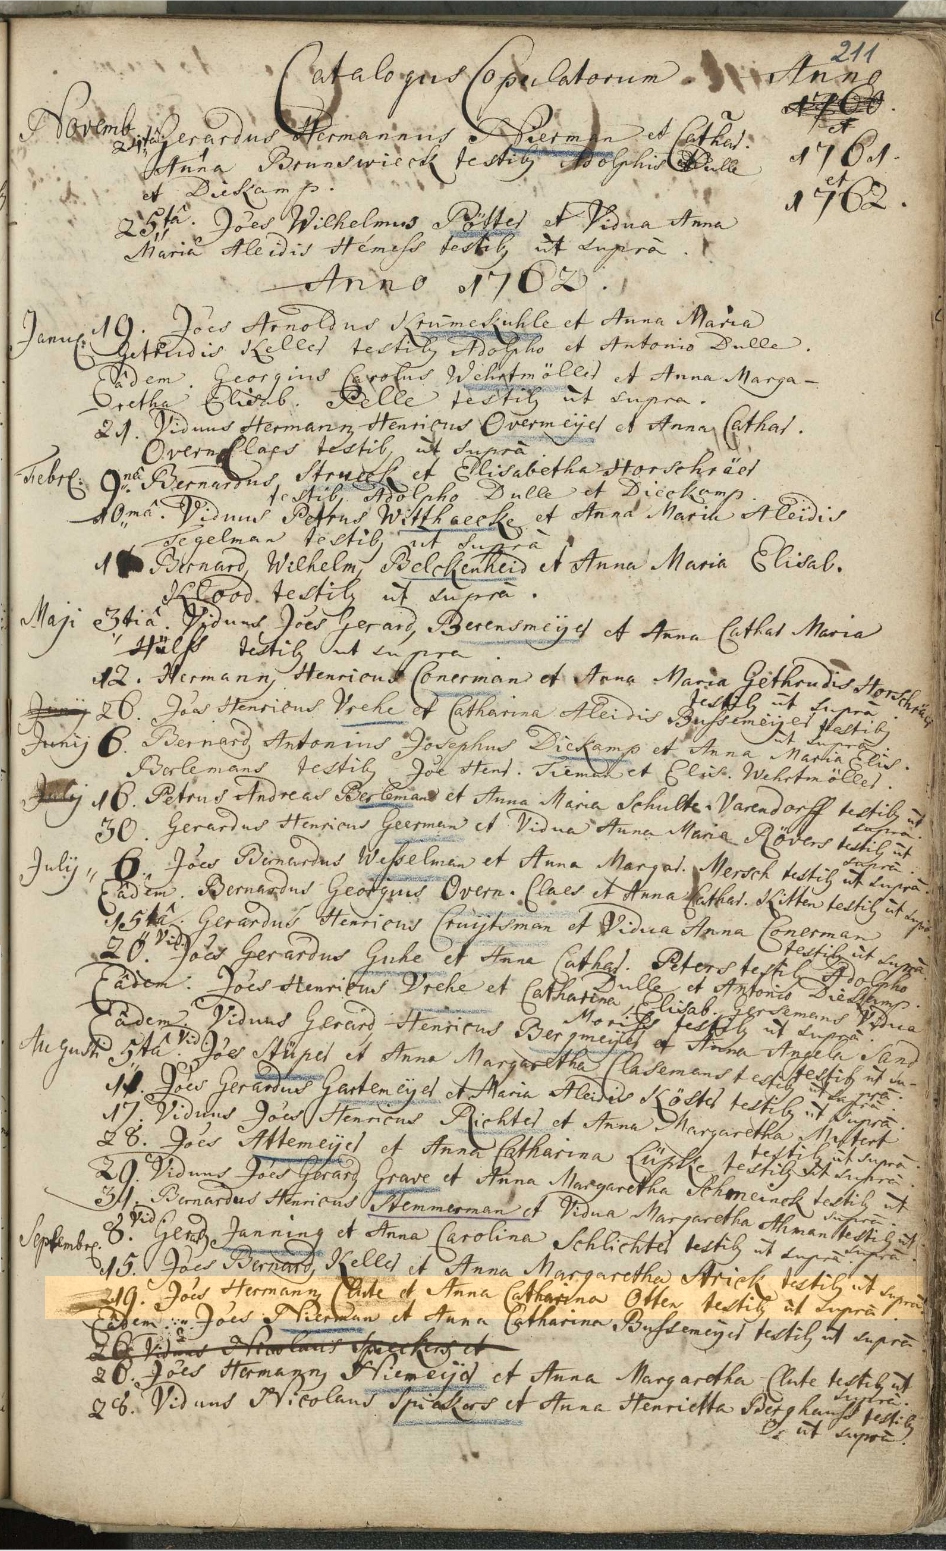 211
Catalogus Copulatorum. Anno
1760.
et
Novemb. 24ta Gerardus Hermannus Bierman et Cathar. 1761.
Anna Brunswieck testib, Adolphis Dulle et
et Dieckamp. 1762.
25ta. Jóes Wilhelmus Pötter et Vidua Anna
Maria Aleidis testib, ut suprà.
Anno 1762.
Janur. 19. Jóes Arnoldus Krümekuhle et Anna Maria
Getrudis Keller testib, Adolpho et Antonio Dulle.
Eâdem. Georgius Carolus Wehrtmöller et Anna Marga-
retha Elisab. Pelle testib, ut supra.
21. Viduus Hermann, Henricus Overmeÿer et Anna Cathar.
Overn Claes testib, ut suprà
Febr. 9nâ Bernardus Struck et Elisabetha Horschräer
testib, Adolpho Dulle et Dieckamp.
10mâ. Viduus Petrus Witthaecke et Anna Maria Aleidis
Segelman testib, ut suprà
Bernard, Wilhelm, Belckenheid et Anna Maria Elisab.
Klood testib, ut suprà.
Maji 3tiâ. Viduus Jóes Gerard, Berensmeÿer et Anna Cathar Maria
Hülss testib, ut supra
12. Hermann, Henricus Conerman et Anna Maria Gethrudis Horschräer
testib, ut suprà.
Junij 26. Jóes Henricus Vrehe et Catharina Aleidis Bussemeÿer testib,
ut suprà
Junij 6. Bernard, Antonius Josephus Dieckamp et Anna Maria Elis.
Berlemans testib, Jóe Henr. Tieman et Elis. Wehrtmöller.
July 16. Petrus Andreas Berleman et Anna Maria Schulte Varendorff testib, ut
suprà.
30. Gerardus Henricus Geerman et Vidua Anna Maria Rövers testib, ut
suprà.
July 6. Jóes Bernardus Wesselman et Anna Margar. Mersch testib, ut suprà.
Eâdem. Bernardus Georgius Overn. Claes et Anna Cathar. Kitten testib, ut suprà
15tâ. Gerardus Henricus Cruÿtsman et Vidua Anna Conerman
testib, ut suprà
20. Vid, Jóes Gerardus Guhe et Anna Cathar. Peters testib, Adolpho
Dulle et Antonio Dieckamp.
Eâdem. Jóes Henricus Vrehe et Catharina Elisab. Gersemans Vidua
testib, ut suprà.
Eâdem Viduus Gerard, Henricus Bergmeÿer et Anna Angela Sand
testib, ut su-
prà.
Augusti 5tâ Vid, Jóes Stüper et Anna Margaretha Clasemans testib, ut suprà.
11. Jóes Gerardus Gartemeÿer et Maria Aleidis Köster testib, ut suprà.
17. Viduus Jóes Henricus Richter et Anna Margaretha Muttert
testib, ut suprà.
28. Jóes Attemeÿer et Anna Catharina Lüpke testib, ut suprà.
29. Viduus Jóes Gerard, Grave et Anna Margaretha Schmeinck testib, ut
suprà.
31. Bernardus Henricus Hemmerman et Vidua Margaretha Ahman testib, ut
suprà.
Septembr. 8. Vid, Gerard, Janning et Anna Carolina Schlichter testib, ut suprà.
15. Jóes Bernard, Keller et Anna Margaretha Strick testib, ut suprà
19. Jóes Hermann, Clute et Anna Catharina Otten testib, ut suprà
Eâdem. Jóes Nierman et Anna Catharina Bussemeÿer testib, ut suprà.
26. Viduus Nicolaus Spiekers et
26. Jóes Hermann, Niemeÿer et Anna Margaretha Clute testib, ut
suprà.
28. Viduus Nicolaus Spiekers et Anna Henrietta Berghauss testib,
ut suprà.